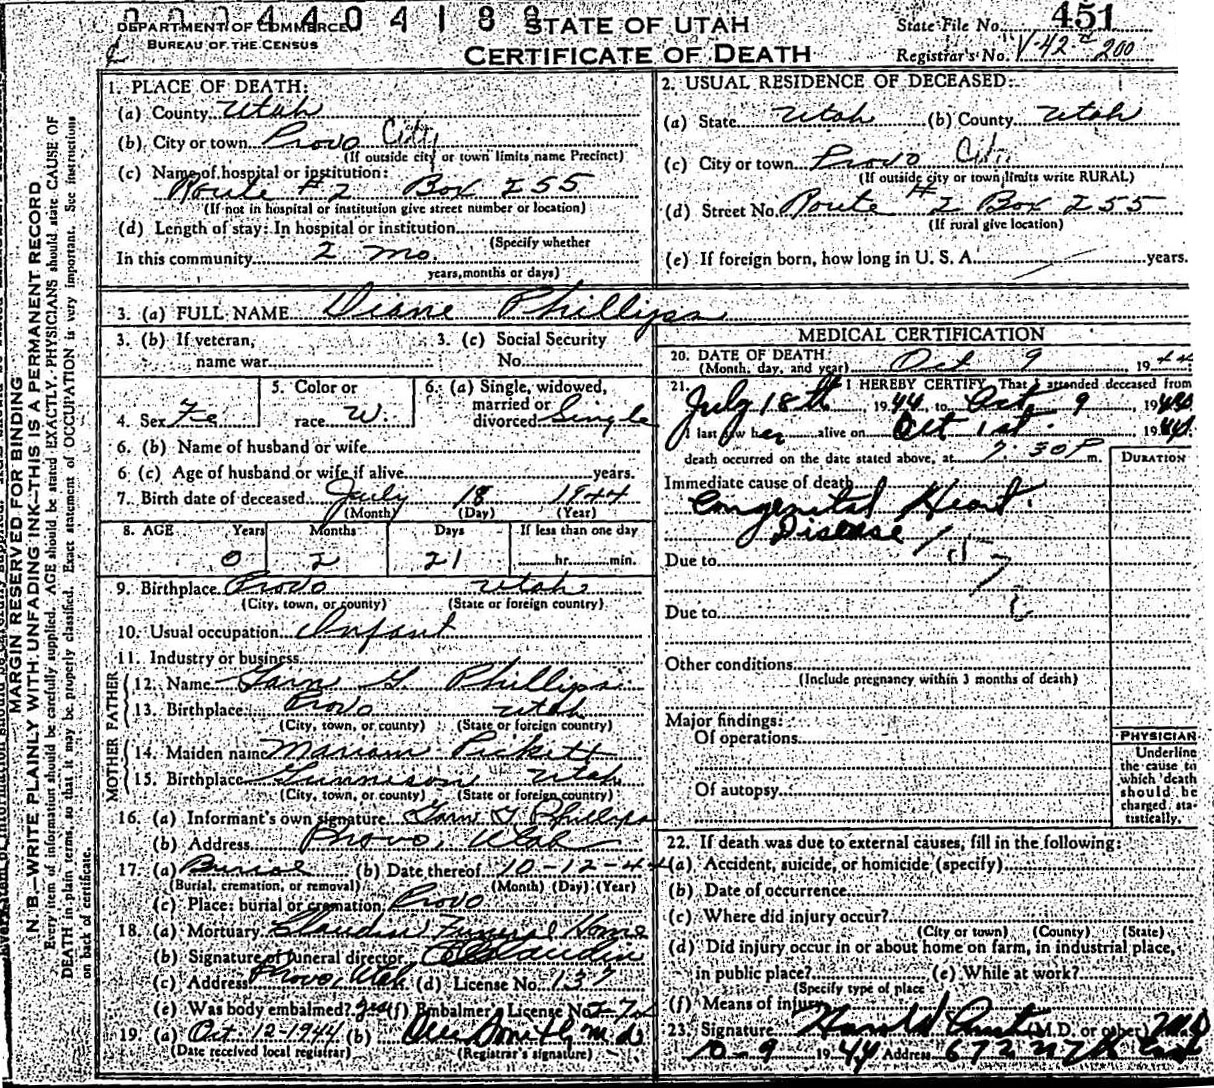 0 0 0 4 4 0 4 1 8 9
DEPARTMENT OF COMMERCE
BUREAU OF THE CENSUS
STATE OF UTAH
CERTIFICATE OF DEATH
State File No. 451
Registrar's No. V-42 200
MARGIN RESERVED FOR BINDING
N. B.—WRITE PLAINLY WITH UNFADING INK—THIS IS A PERMANENT RECORD
Every item of information should be carefully supplied. AGE should be stated EXACTLY. PHYSICIANS should state CAUSE OF
DEATH in plain terms, so that it may be properly classified. Exact statement of OCCUPATION is very important. See instructions
on back of certificate.
1. PLACE OF DEATH:
(a) County Utah
(b) City or town Provo City
(If outside city or town limits name Precinct)
(c) Name of hospital or institution:
Route #2 Box 255
(If not in hospital or institution give street number or location)
(d) Length of stay: In hospital or institution
(Specify whether
In this community 2 mo.
years, months or days)
2. USUAL RESIDENCE OF DECEASED:
(a) State Utah (b) County Utah
(c) City or town Provo City
(If outside city or town limits write RURAL)
(d) Street No. Route #2 Box 255
(If rural give location)
(e) If foreign born, how long in U. S. A. years.
3. (a) FULL NAME Diane Phillips
3. (b) If veteran,
name war
3. (c) Social Security
No.
4. Sex Fe
5. Color or
race W.
6. (a) Single, widowed,
married or
divorced Single
6. (b) Name of husband or wife
6. (c) Age of husband or wife if alive years.
7. Birth date of deceased July 18 1944
(Month) (Day) (Year)
8. AGE Years Months Days If less than one day
0 2 21 hr. min.
9. Birthplace Provo Utah
(City, town, or county) (State or foreign country)
10. Usual occupation Infant
11. Industry or business
FATHER
12. Name G. Phillips
13. Birthplace Provo Utah
(City, town, or county) (State or foreign country)
MOTHER
14. Maiden name Mariam Pickett
15. Birthplace Gunnison Utah
(City, town, or county) (State or foreign country)
16. (a) Informant's own signature G Phillips
(b) Address Provo, Utah
17. (a) Burial (b) Date thereof 10-12-44
(Burial, cremation, or removal) (Month) (Day) (Year)
(c) Place: burial or cremation Provo
18. (a) Mortuary Claudin Funeral Home
(b) Signature of funeral director Claudin
(c) Address Provo, Utah (d) License No. 137
(e) Was body embalmed? yes (f) Embalmer's License No.
19. (a) Oct. 12-1944 (b) M.D.
(Date received local registrar) (Registrar's signature)
MEDICAL CERTIFICATION
20. DATE OF DEATH:
(Month, day, and year) Oct 9 1944
21. I HEREBY CERTIFY, That I attended deceased from
July 18th, 1944, to Oct 9 1944
I last saw her alive on Oct 1st 1944
death occurred on the date stated above, at 7 30 P m.
DURATION
Immediate cause of death
Congenital Heart
Disease 157
Due to
Due to
Other conditions
(Include pregnancy within 3 months of death)
Major findings:
Of operations
Of autopsy
PHYSICIAN
Underline
the cause to
which death
should be
charged sta-
tistically.
22. If death was due to external causes, fill in the following:
(a) Accident, suicide, or homicide (specify)
(b) Date of occurrence
(c) Where did injury occur?
(City or town) (County) (State)
(d) Did injury occur in or about home on farm, in industrial place,
in public place? (e) While at work?
(Specify type of place
(f) Means of injury
23. Signature Harold (M.D. or other) MD
10-9 1944 Address 672